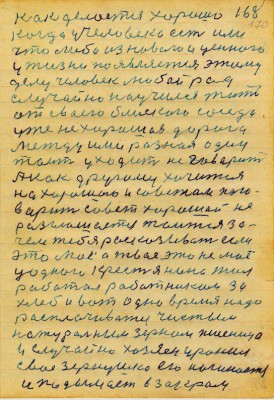 как делается хорошо 168
когда у человека есть или
что либо из нового и ценного
у жизни появляется этому
делу человек любой рад
случайно научился жить
от своего близкого соседа
уже не хорошая дорога
между ими разная один
таит уходит не говарит
А как другому хочится
на хорошого и советам пого
варит совет хорошай не
разглашается таится за-
чем тебя расказывать если
это мое а твае это не маё
у одного крестянина жил
работал работником за
хлеб и вот одно время надо
расплачивати чистым
натуральным зерном пшеница
и случайно хозяен уронил
свое зернушко его
и подымает